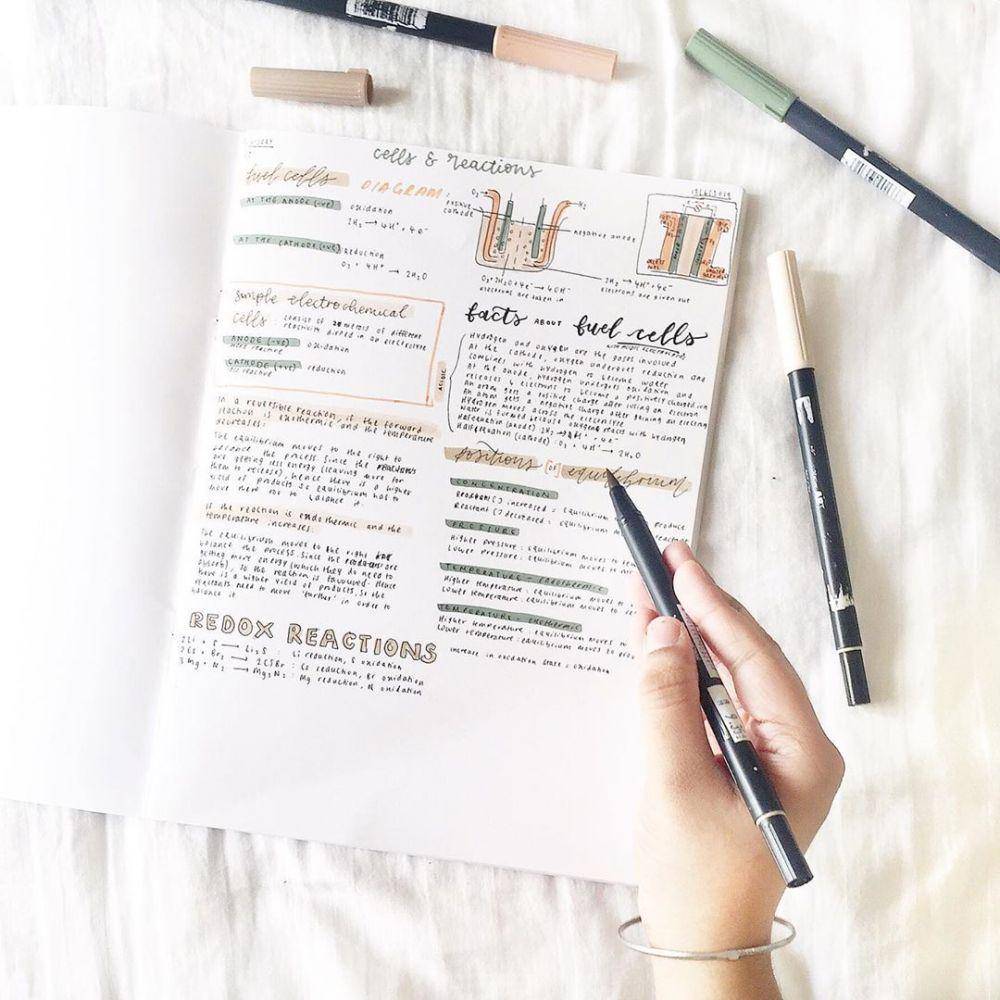 cells & reactions
fuel cells
AT THE ANODE (-ve) oxidation
2H₂ → 4H⁺ + 4e⁻
AT THE CATHODE (+ve)
Reduction
O₂ + 4H⁺ → 2H₂O
DIAGRAM:
O₂
H₂
positive
cathode
negative anode
O₂+2H₂O+4e⁻ → 4OH⁻
electrons are taken in
2H₂ → 4H⁺ + 4e⁻
electrons are given out
simple electrochemical
cells : consist of 2 metals of different
reactivity dipped in an electrolyte
ANODE (-ve) oxidation
more reactive
CATHODE (+ve) reduction
less reactive
ACIDIC
In a reversible reaction, if the forward
reaction is exothermic and the temperature
decreases:
The equilibrium moves to the right to
balance the process. Since the reactants
are getting less energy (leaving more for
them to release), hence there is a higher
yield of products so equilibrium has to
move there too to balance it.
If the reaction is endothermic and the
temperature increases:
The equilibrium moves to the right
balance the process. Since the reactants are
getting more energy (which they do need to
absorb), so the reaction is favoured. Hence
there is a higher yield of products, so the
reactants need to move 'further' in order to
balance it
REDOX REACTIONS
2Li + S → Li₂S : Li reduction, S oxidation
2Cs + Br₂ → 2CsBr : Cs reduction, Br oxidation
3Mg + N₂ → Mg₃N₂ : Mg reduction, N oxidation
facts ABOUT fuel cells
Hydrogen and oxygen are the gases involved
At the cathode, oxygen undergoes reduction and
combines with hydrogen to become water
At the anode, hydrogen undergoes oxidation and
releases 4 electrons to become a positively charged ion
An atom gets a positive charge after losing an electron
An atom gets a negative charge after gaining an electron
Hydrogen moves across the electrolyte
Water is formed because oxygen reacts with hydrogen
Half equation (anode) : 2H₂ → 4H⁺ + 4e⁻
Half equation (cathode) : O₂ + 4H⁺ → 2H₂O
positions OF equilibrium
CONCENTRATION
Reactant [ ] increased = equilibrium produce
Reactant [ ] decreased = equilibrium
PRESSURE
Higher pressure : equilibrium moves to
Lower pressure : equilibrium moves to
TEMPERATURE - ENDOTHERMIC
Higher temperature : equilibrium moves to
Lower temperature : equilibrium moves to
TEMPERATURE - EXOTHERMIC
Higher temperature : equilibrium moves
Lower temperature : equilibrium moves to
increase in oxidation state = oxidation